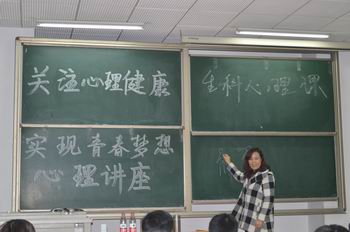 关注心理健康
生科心理课
实现青春梦想
心理讲座